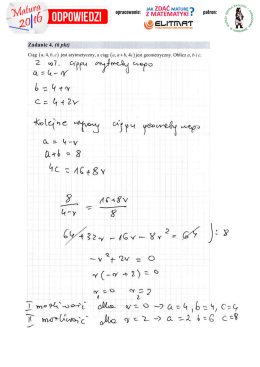 Matura
2016
ODPOWIEDZI
opracowanie:
JAK ZDAĆ MATURĘ
Z MATEMATYKI?
ELITMAT
patron:
Zadanie 4. (6 pkt)
Ciąg (a, 4, b, c) jest arytmetyczny, a ciąg (a, a+b, 4c) jest geometryczny. Oblicz a, b i c.
z wł. ciągu arytmetycznego
a = 4-r
b = 4+r
c = 4+2r
Kolejne wyrazy ciągu geometrycznego
a = 4-r
a+b = 8
4c = 16+8r
8/(4-r) = (16+8r)/8
64+32r-16r-8r² = 64 /:8
-r²+2r = 0
r(-r+2) = 0
r=0 r=2
I możliwość dla r=0 → a=4, b=4, c=4
II możliwość dla r=2 → a=2 b=6 c=8